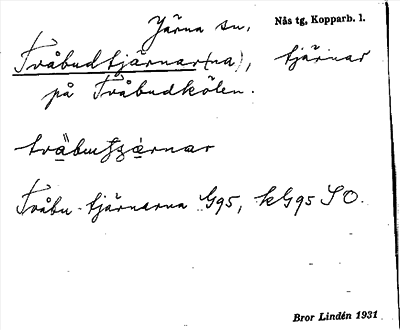 Järna sn.
Nås tg, Kopparb. l.
Tvåbudtjärnar(na), tjärnar
på Tvåbudkölen.
Tvåbu-tjärnarna G95, kG95 SO.
Bror Lindén 1931